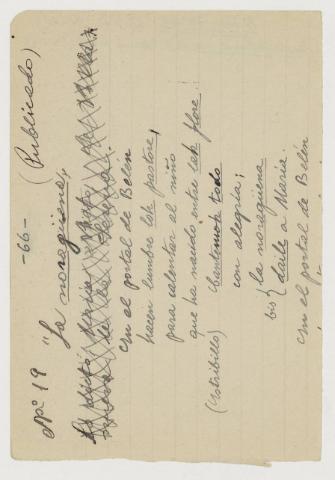 -66-
Nº 19 "La noragiena" (Publicado)
en el portal de Belén
hacen lumbre loh pastore,
para calentar al niño
que ha nacido entre lah flore:
(estribillo) Cantemoh todo
con alegria;
bis { la noragiena
darle a Maria.
en el portal de Belén